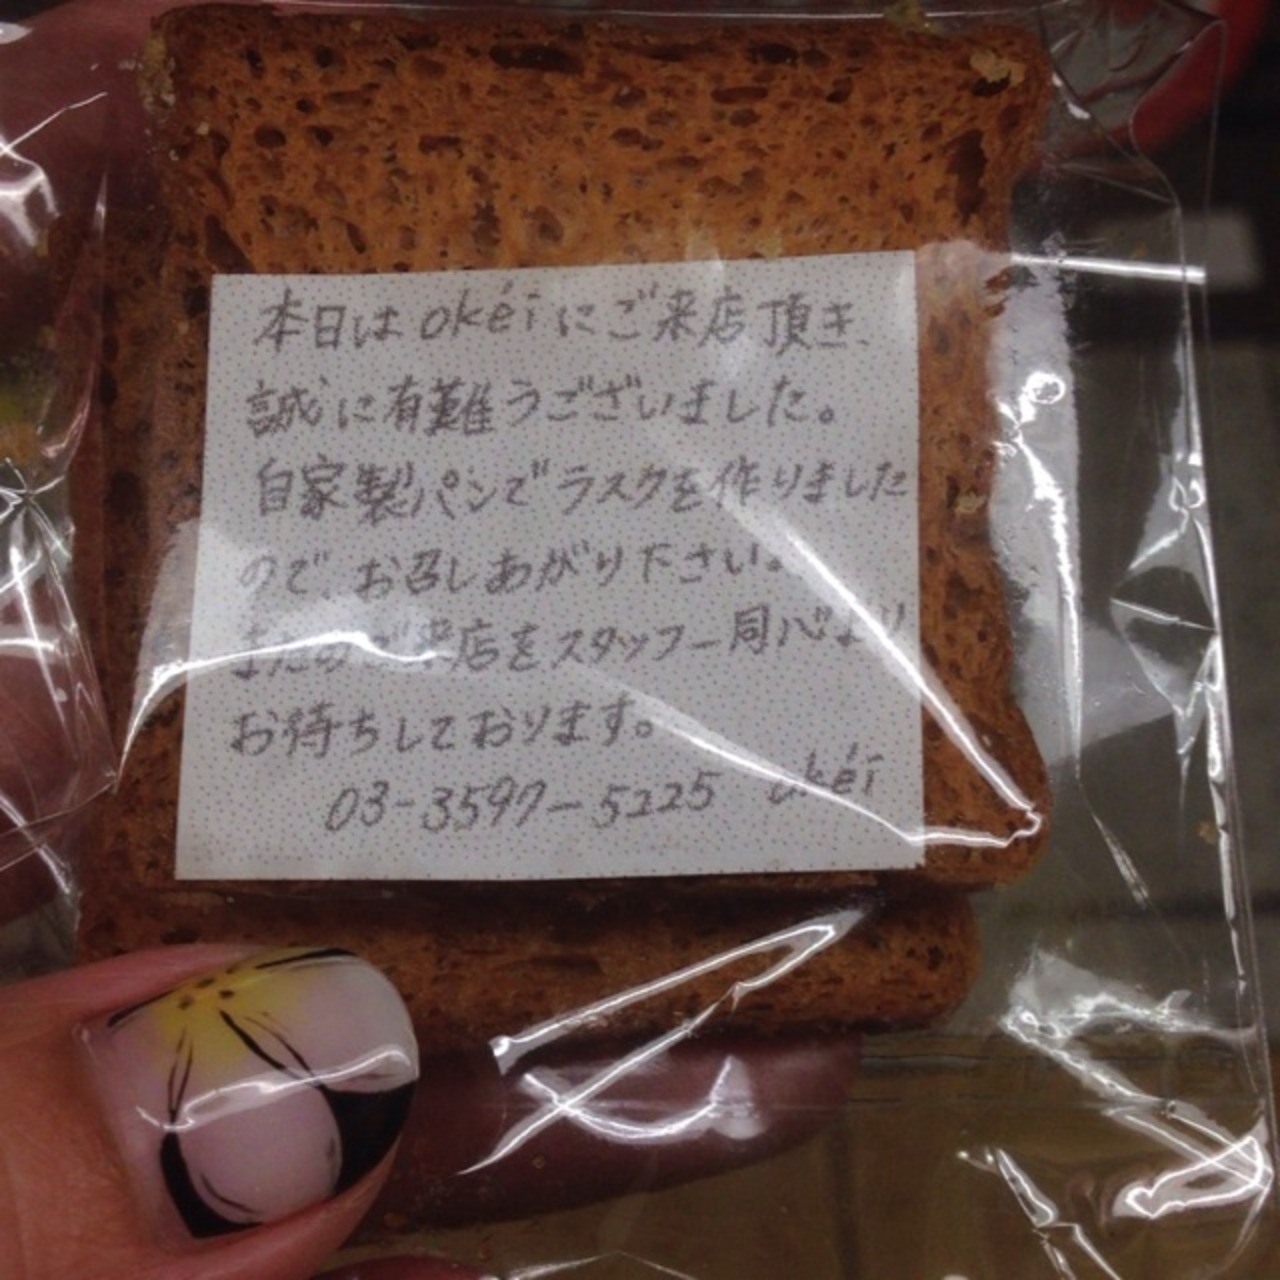 本日はokéiにご来店頂き、
誠に有難うございました。
自家製パンでラスクを作りました
ので、お召しあがり下さい。
またのご来店をスタッフ一同心より
お待ちしております。
03-3597-5225 okéi